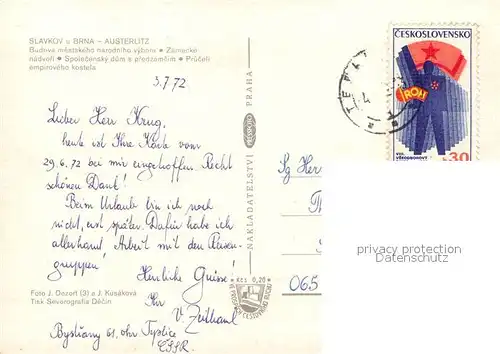 SLAVKOV u BRNA – AUSTERLITZ
Budova městského národního výboru • Zámecké
nádvoří • Společenský dům s předzámčím • Průčelí
empirového kostela
3.7.72
Lieber Herr Krug,
heute ist Ihre Karte vom
29.6.72 bei mir eingetroffen. Recht
schönen Dank!
Beim Urlaub bin ich noch
nicht, erst später. Dafür habe ich
allerhand Arbeit mit den Reisen-
gruppen!
Herzliche Grüsse!
Ihr
V. Zeithaml
Bystřany 61, ohr Teplice
ČSSR.
Foto J. Dezort (3) a J. Kusáková
Tisk Severografia Děčín
NAKLADATELSTVÍ PRESSFOTO PRAHA
Kčs 0,20
Sg Herr
065
ČESKOSLOVENSKO
ROH
VIII.
VŠEODBOROVÝ
30
privacy protection
Datenschutz